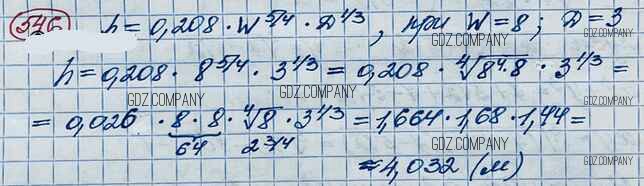 546 h = 0,208 · W^5/4 · D^1/3, при W = 8; D = 3
GDZ.COMPANY
h = 0,208 · 8^5/4 · 3^1/3 = 0,208 · ⁴√(8⁴·8) · 3^1/3 =
GDZ.COMPANY GDZ.COMPANY
GDZ.COMPANY GDZ.COMPANY
= 0,026 · 8 · 8 · ⁴√8 · 3^1/3 = 1,664 · 1,68 · 1,44 =
64 2^3/4 GDZ.COMPANY
≈ 4,032 (м)
GDZ.COMPANY